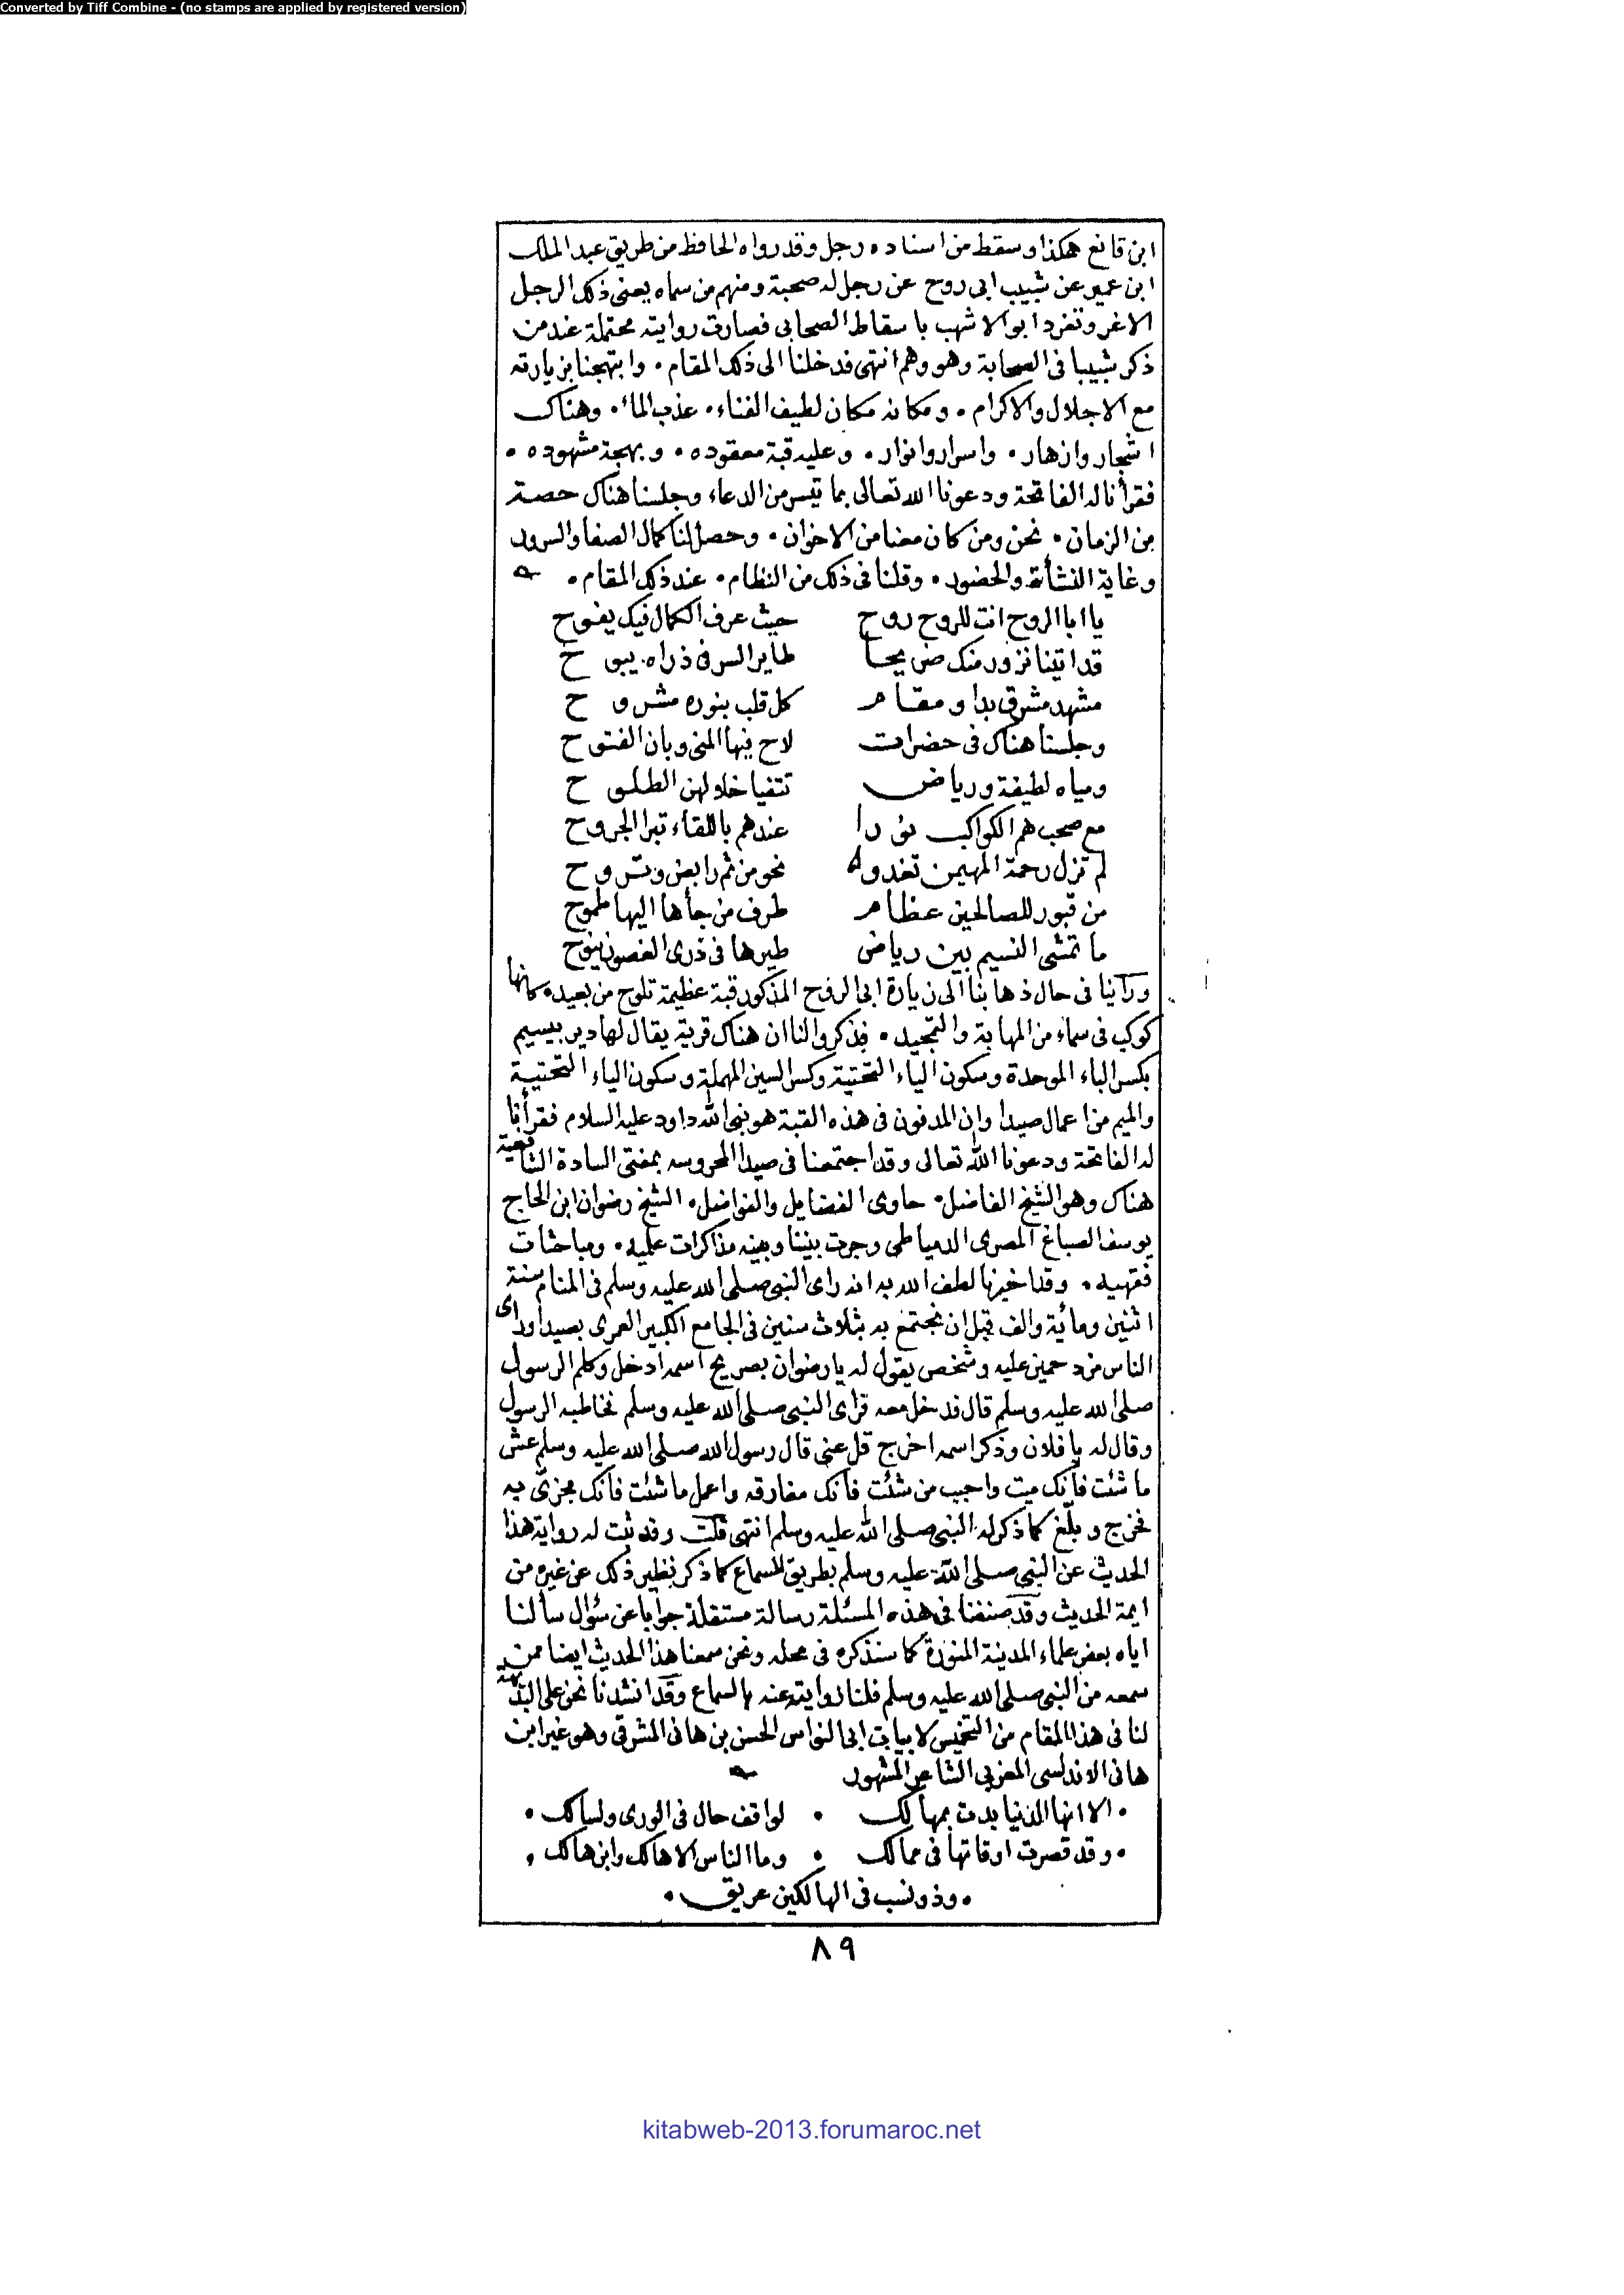 Converted by Tiff Combine - (no stamps are applied by registered version)
ابن قانع هكذا وسقط من اسناده رجل وقد رواه الحافظ من طريق عبد الملك
ابن عمير عن شبيب ابى روح عن رجل له صحبة ومنهم من سماه يعنى ذلك الرجل
الاغر وتفرد ابو الاشهب باسقاط الصحابى فصارت روايته محتملة عند من
ذكر شبيبا فى الصحابة وهو وهم انتهى فدخلنا الى ذلك المقام • وابتهجنا بزيارته
مع الاجلال والاكرام • ومكانه مكان لطيف الفناء • عذب الماء • وهناك
اشجار وازهار • واسرار وانوار • وعليه قبة معقوده • وبهجة مشهوده •
فقرأنا له الفاتحة ودعونا الله تعالى بما تيسر من الدعاء وجلسنا هناك حصة
من الزمان • نحن ومن كان معنا من الاخوان • وحصل لنا كمال الصفا والسرور
وغاية النشأة والحضور • وقلنا فى ذلك من النظام • عند ذلك المقام •
يا ابا الروح انت للروح روح حيث عرف الكمال فيك يفوح
قد اتينا نزور منك ضريحا طاير السر فى ذراه يبوح
مشهد مشرق بدا ومقام كل قلب بنوره مشروح
وجلسنا هناك فى حضرات لاح فيها المنى وبان الفتوح
ومياه لطيفة ورياض تتفيا خلالهن الطلوح
مع صحب هم الكواكب نورا عندهم باللقاء تبرا الجروح
لم تزل رحمة المهيمن تغدو نحو من ثم رابض وتروح
من قبور للصالحين عظام طرف من جأها اليها طموح
ما تمشى النسيم بين رياض طيرها فى ذرى الغصون ينوح
ورأينا فى حال ذهابنا الى زيارة ابى الروح المذكور قبة عظيمة تلوح من بعيد • كانها
كوكب فى سماء من المهابة والتمجيد • فذكروا لنا ان هناك قرية يقال لها دير بيسيم
بكسر الباء الموحدة وسكون الياء التحتية وكسر السين المهملة وسكون الياء التحتيية
والميم من اعمال صيدا وان المدفون فى هذه القبة هو نبى الله داود عليه السلام فقرأنا
له الفاتحة ودعونا الله تعالى وقد اجتمعنا فى صيدا المحروسه بمفتى السادة الشافعية
هناك وهو الشيخ الفاضل • حاوى الفضايل والفواضل • الشيخ رضوان ابن الحاج
يوسف الصباغ المصرى الدمياطى وجرت بيننا وبينه مذاكرات علميه • ومباحثات
فقهيه • وقد اخبرنا لطف الله به انه راى النبى صلى الله عليه وسلم فى المنام سنة
اثنين ومائية والف قبل ان نجتمع به بثلاث سنين فى الجامع الكبير العمرى بصيدا وراى
الناس مزدحمين عليه وشخص يقول له يا رضوان بصريح اسمه ادخل وكلم الرسول
صلى الله عليه وسلم قال فدخل معه فراى النبى صلى الله عليه وسلم فخاطبه الرسول
وقال له يا فلان وذكر اسمه اخرج قل عنى قال رسول الله صلى الله عليه وسلم عش
ما شئت فأنك ميت واحبب من شئت فأنك مفارقه واعمل ما شئت فأنك مجزى به
فخرج وبلّغ كما ذكر له النبى صلى الله عليه وسلم انتهى قلت وقد ثبت له رواية هذا
الحديث عن النبى صلى الله عليه وسلم بطريق السماع كما ذكر نظير ذلك عن غيره من
ايمة الحديث وقد صنفنا فى هذه المسئلة رسالة مستقلة جوابا عن سئوال سألنا
اياه بعض علماء المدينة المنورة كما سنذكره فى محله ونحن سمعنا هذا الحديث ايضا ممن
سمعه من النبى صلى الله عليه وسلم فلنا روايته عنه بالسماع وقد انشدنا نحن على البديهة
لنا فى هذا المقام من التخميس لابيات ابى النواس الحسن بن هانى المشرقى وهو غير ابن
هانى الاندلسى المغربى الشاعر المشهور
• الا انها الدنيا بدت بمهالك • لواقف حال فى الورى ولسالك •
• وقد قصرت اوقاتها فى ممالك • وما الناس الا هالك وابن هالك •
• وذو نسب فى الهالكين عريق •
٨٩
kitabweb-2013.forumaroc.net